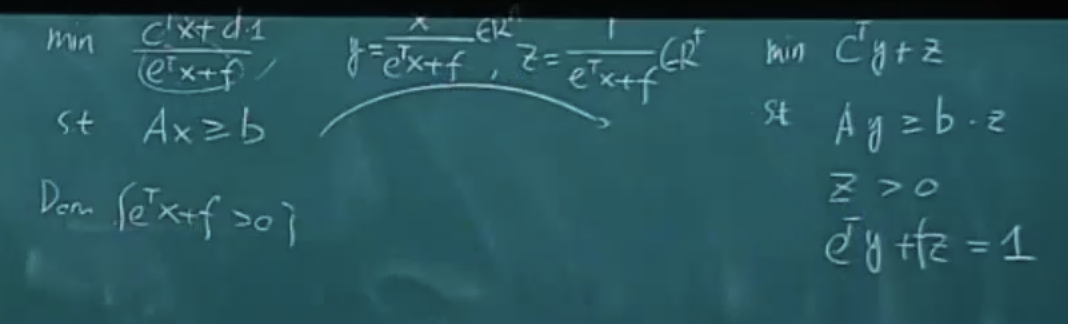 min (cᵀx + d·1)/(eᵀx+f)
st Ax ≥ b
Dom {eᵀx+f >0}
y = x/(eᵀx+f) ∈ ℝⁿ, z = 1/(eᵀx+f) ∈ ℝ⁺
min cᵀy + z
st Ay ≥ b·z
z > 0
eᵀy + fz = 1